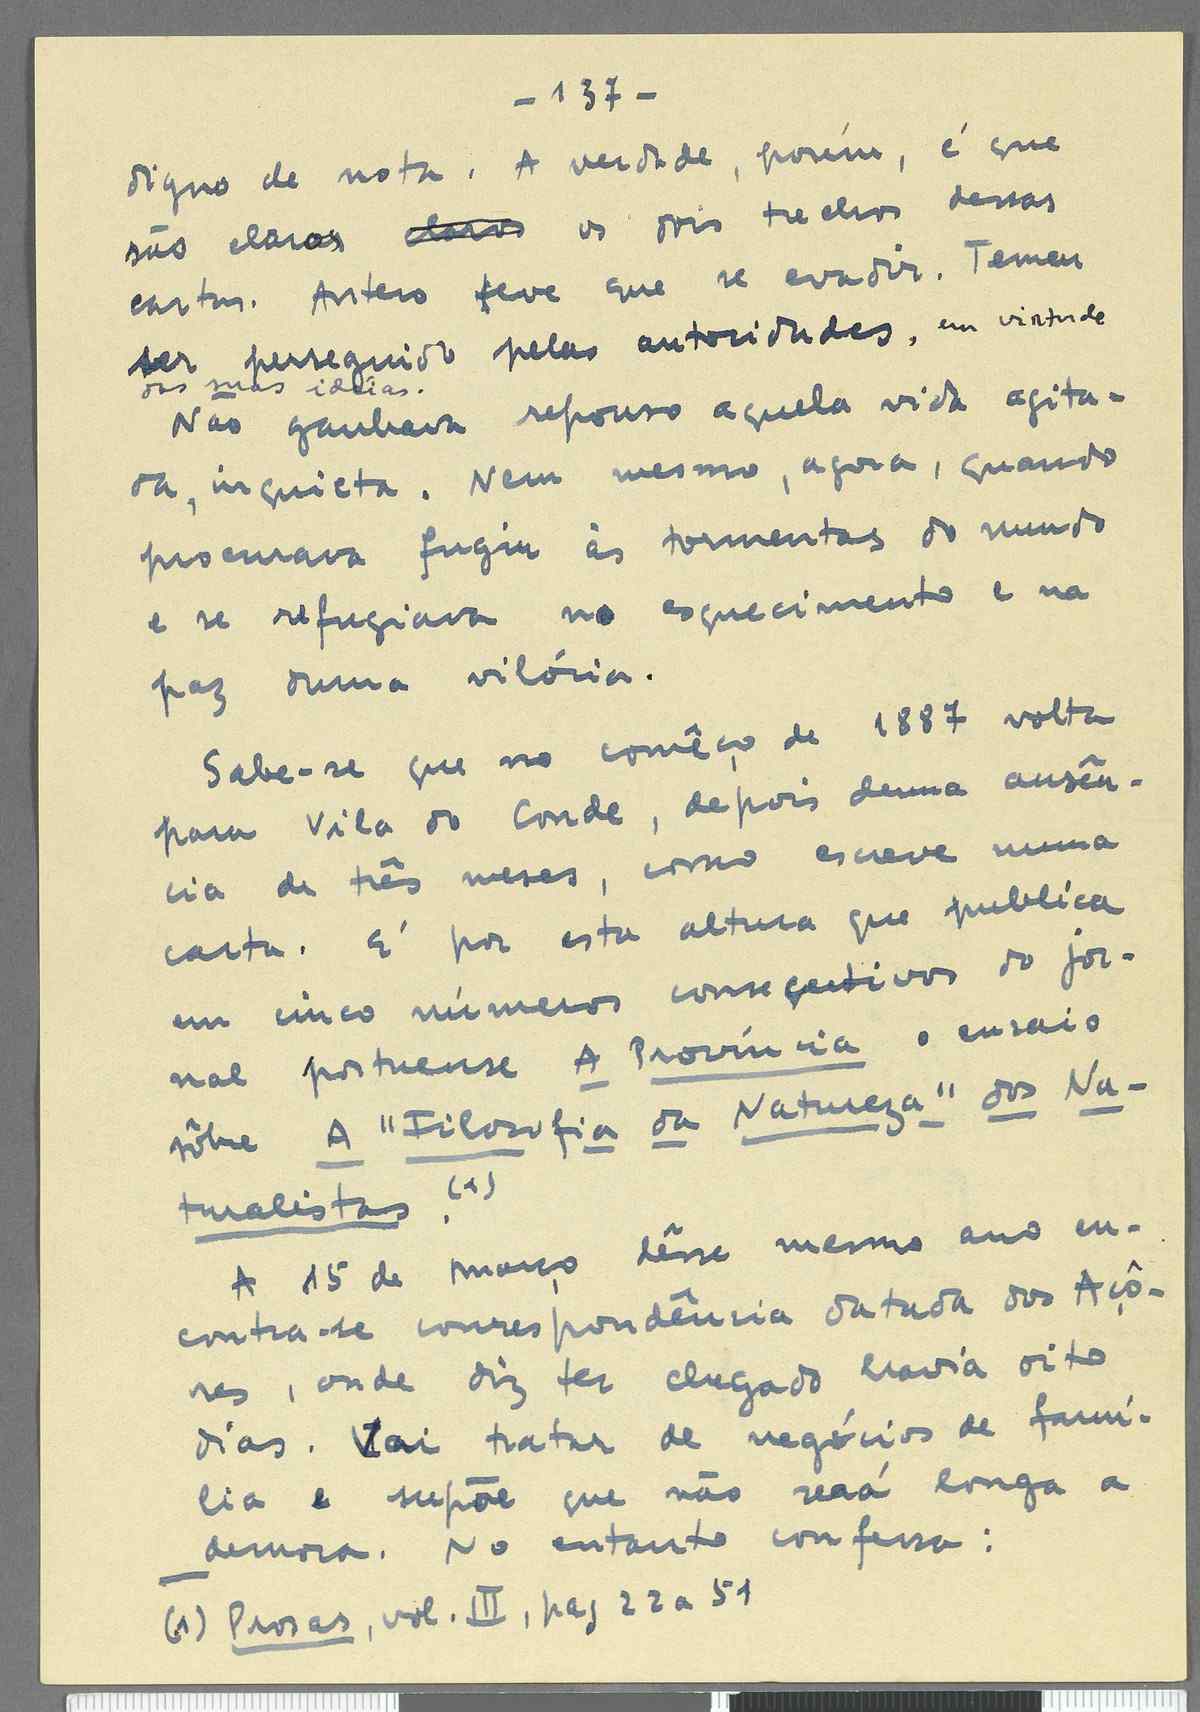 - 137 -
digno de nota. A verdade, porém, é que
são claros claros os dois trechos dessas
cartas. Antero teve que se evadir. Temeu
ser perseguido pelas autoridades, em virtude
das suas idéias.
Não ganhava repouso aquela vida agita-
da, inquieta. Nem mesmo, agora, quando
procurava fugir às tormentas do mundo
e se refugiava no esquecimento e na
paz duma vilória.
Sabe-se que no comêço de 1887 volta
para Vila do Conde, depois duma ausên-
cia de três meses, como escreve numa
carta. É por esta altura que publica
em cinco números consecutivos do jor-
nal portuense A Província o ensaio
sôbre A "Filosofia da Natureza" dos Na-
turalistas.(1)
A 15 de março dêsse mesmo ano en-
contra-se correspondência datada dos Açô-
res, onde diz ter chegado havia oito
dias. Vai tratar de negócios de famí-
lia e supõe que não será longa a
demora. No entanto confessa:
(1) Prosas, vol. III, pag 22 a 51